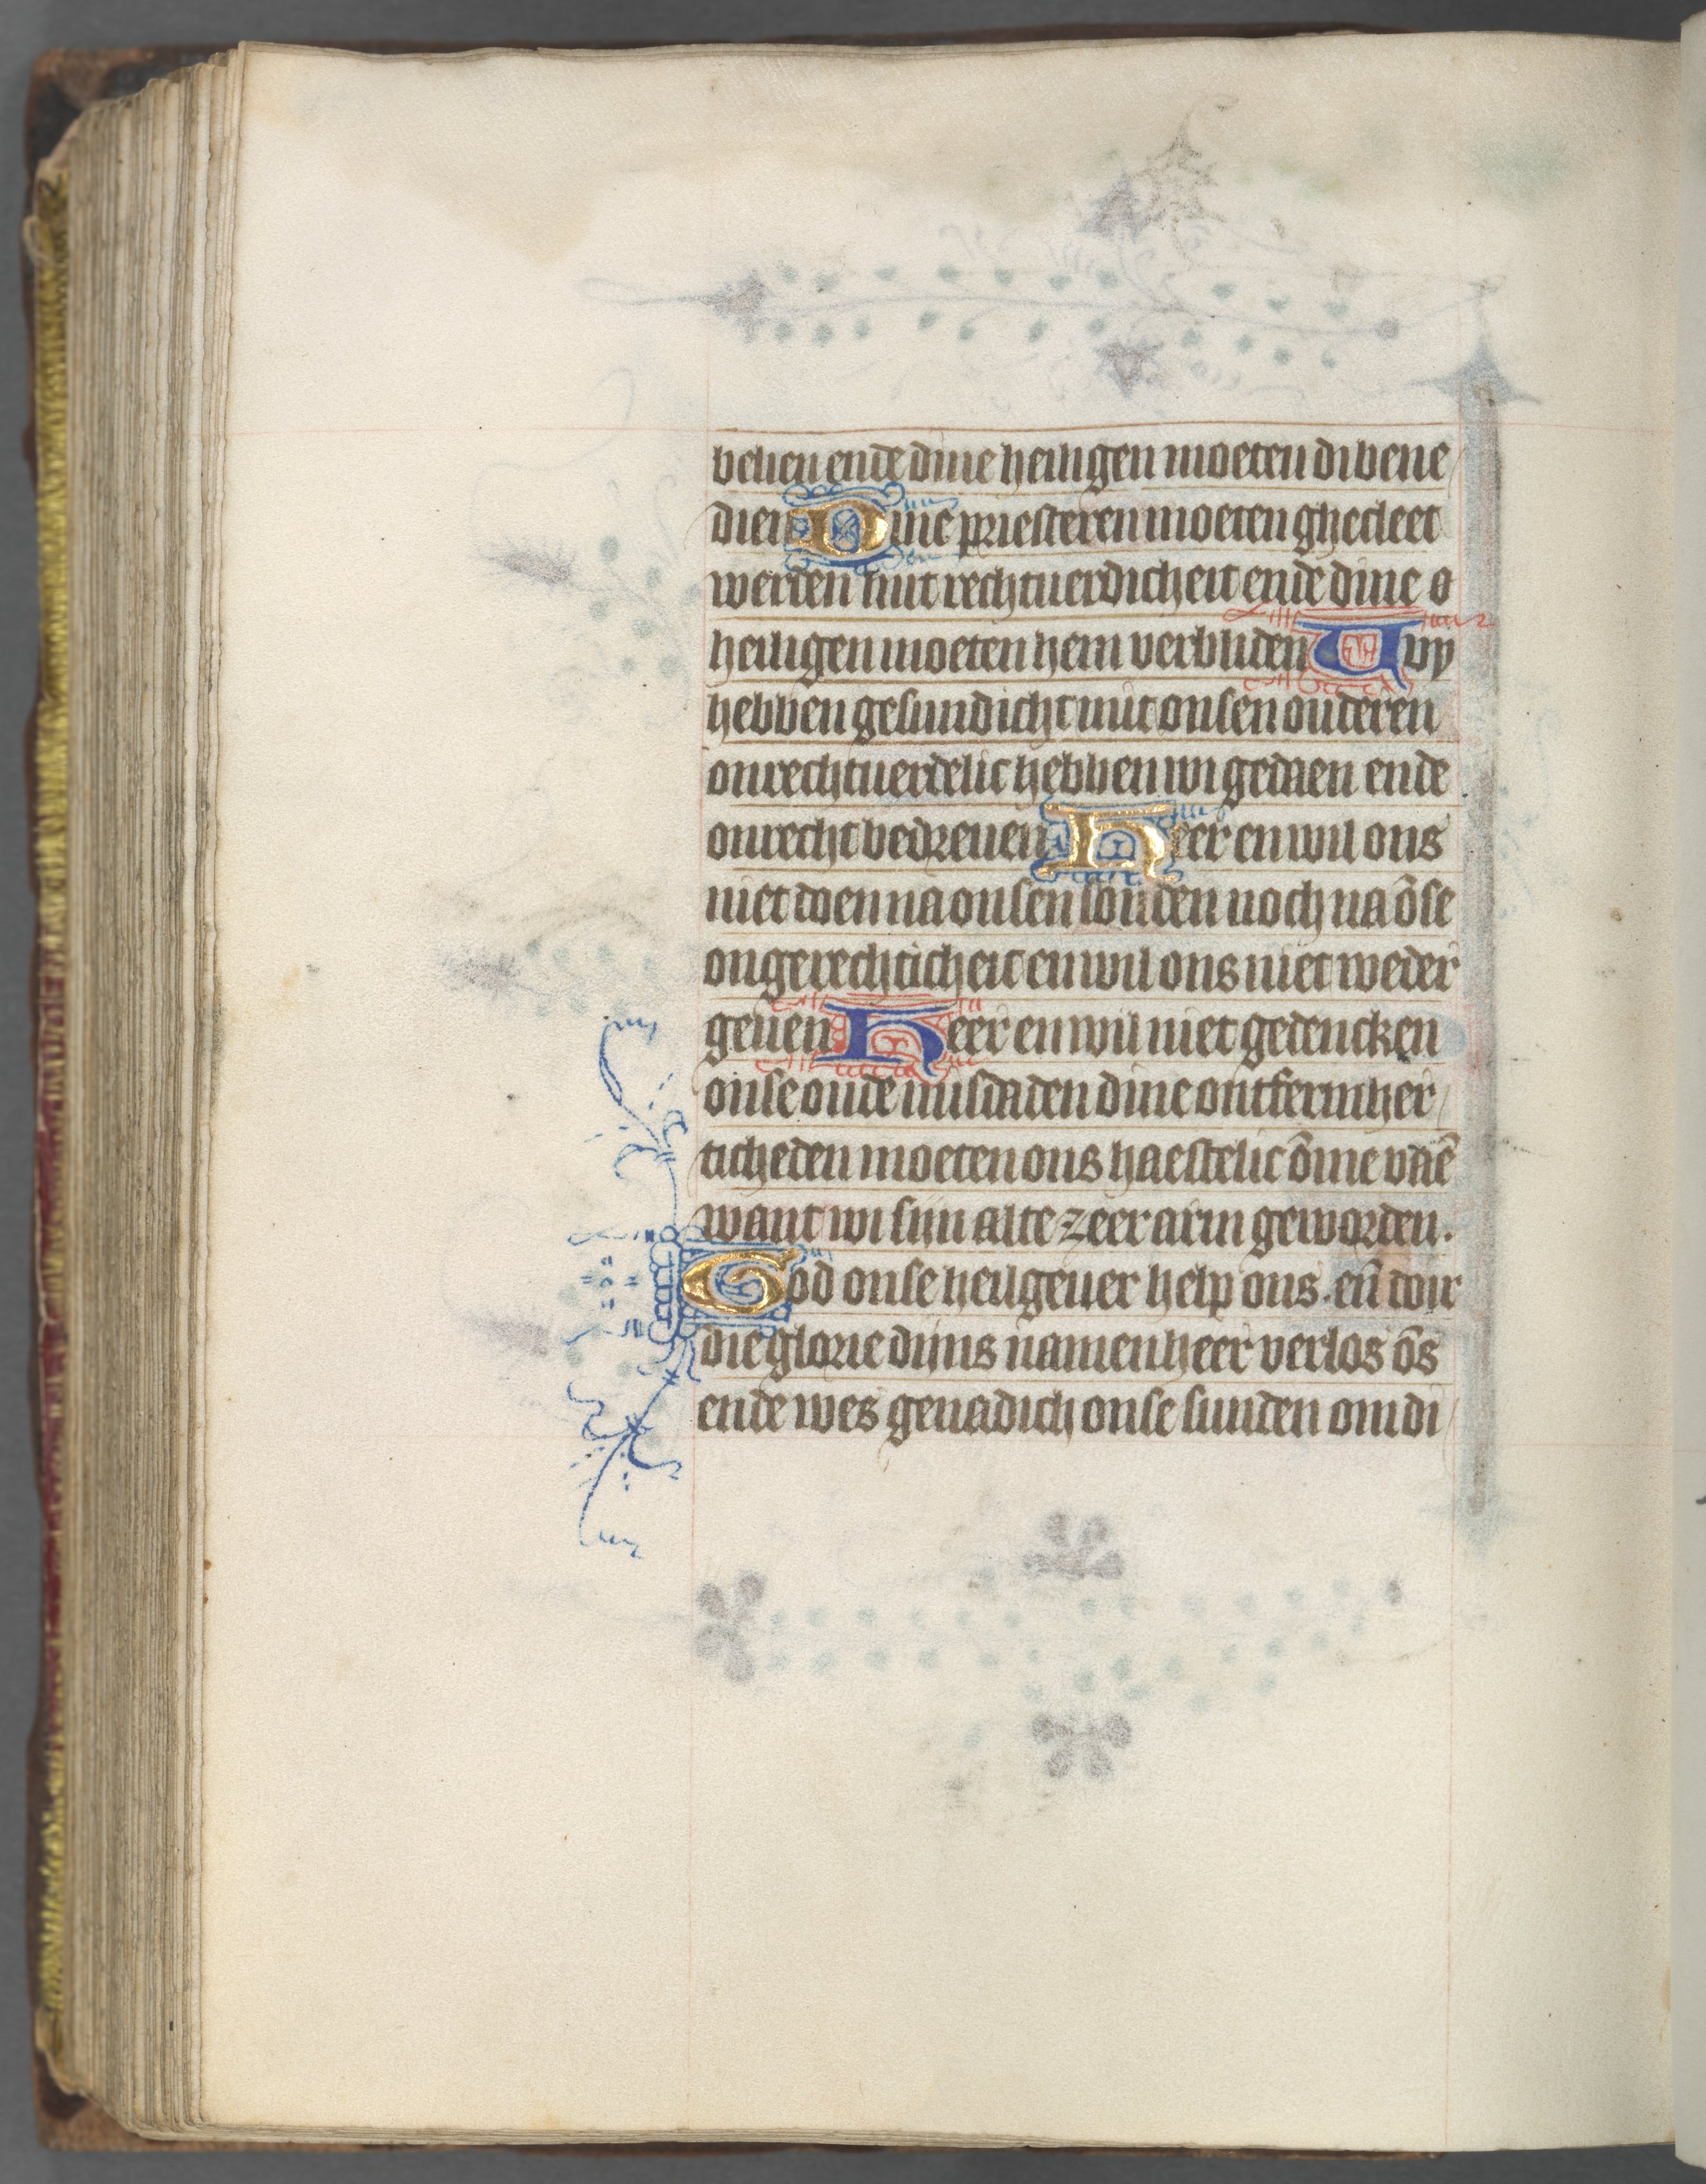 belien ende dine heiligen moeten di bene
dien Dine priesteren moeten ghecleet
werden mit rechtuerdicheit ende dine o
heiligen moeten hem verbliden Wy
hebben gesundicht mit onsen ouderen
onrechtuerdelic hebben wi gedaen ende
onrecht bedreuen Heer en wil ons
niet doen na onsen sonden noch na ōse
ongerechticheit en wil ons niet weder
geuen Heer en wil niet gedencken
onse oude misdaden dine ontfermher
ticheden moeten ons haestelic ōme vaē
want wi sijn alte zeer arm geworden.
God onse heilgeuer help ons. en̄ doir
die glorie dijns namen heer verlos ōs
ende wes genadich onse sunden om di